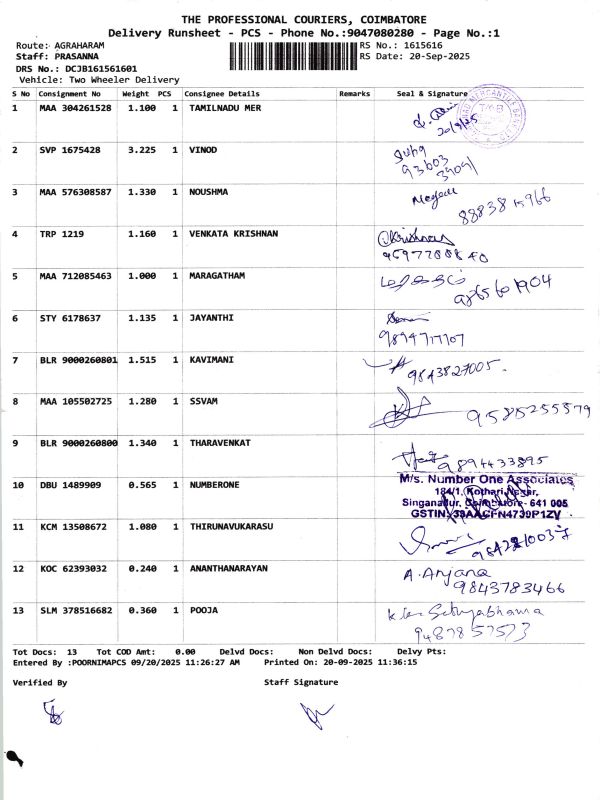 THE PROFESSIONAL COURIERS, COIMBATORE
Delivery Runsheet - PCS - Phone No.:9047080280 - Page No.:1
Route: AGRAHARAM RS No.: 1615616
Staff: PRASANNA RS Date: 20-Sep-2025
DRS No.: DCJB161561601
Vehicle: Two Wheeler Delivery
S No Consignment No Weight PCS Consignee Details Remarks Seal & Signature
1 MAA 304261528 1.100 1 TAMILNADU MER
20/9/25
2 SVP 1675428 3.225 1 VINOD
Suba
93603
39091
3 MAA 576308587 1.330 1 NOUSHMA
88838 15966
4 TRP 1219 1.160 1 VENKATA KRISHNAN Krishnan
5 MAA 712085463 1.000 1 MARAGATHAM
9865601904
6 STY 6178637 1.135 1 JAYANTHI
9894717107
7 BLR 9000260801 1.515 1 KAVIMANI
9843827005.
8 MAA 105502725 1.280 1 SSVAM 9585255579
9 BLR 9000260800 1.340 1 THARAVENKAT
9894433895
10 DBU 1489909 0.565 1 NUMBERONE
M/s. Number One Associates
184/1, Kothari Nagar,
Singanallur, Coimbatore- 641 005
GSTIN: 33AACFN4739P1ZV
11 KCM 13508672 1.080 1 THIRUNAVUKARASU
12 KOC 62393032 0.240 1 ANANTHANARAYAN A. Anjana
9843783466
13 SLM 378516682 0.360 1 POOJA Sathyabhama
9487857573
Tot Docs: 13 Tot COD Amt: 0.00 Delvd Docs: Non Delvd Docs: Delvy Pts:
Entered By :POORNIMAPCS 09/20/2025 11:26:27 AM Printed On: 20-09-2025 11:36:15
Verified By Staff Signature